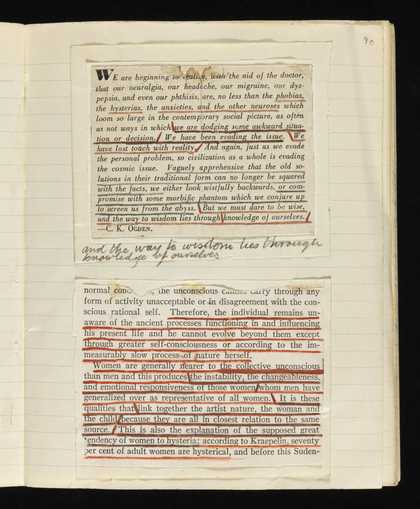 90
WE are beginning to realize, with the aid of the doctor,
that our neuralgia, our headache, our migraine, our dys-
pepsia, and even our phthisis, are, no less than the phobias,
the hysterias, the anxieties, and the other neuroses which
loom so large in the contemporary social picture, as often
as not ways in which we are dodging some awkward situa-
tion or decision. We have been evading the issue. We
have lost touch with reality. And again, just as we evade
the personal problem, so civilization as a whole is evading
the cosmic issue. Vaguely apprehensive that the old so-
lutions in their traditional form can no longer be squared
with the facts, we either look wistfully backwards, or com-
promise with some morbific phantom which we conjure up
to screen us from the abyss. But we must dare to be wise,
and the way to wisdom lies through knowledge of ourselves.
—C. K. OGDEN.
and the way to wisdom lies through
knowledge of ourselves
normal the unconscious cannot carry through any
form of activity unacceptable or in disagreement with the con-
scious rational self. Therefore, the individual remains un-
aware of the ancient processes functioning in and influencing
his present life and he cannot evolve beyond them except
through greater self-consciousness or according to the im-
measurably slow process of nature herself.
Women are generally nearer to the collective unconscious
than men and this produces the instability, the changeableness,
and emotional responsiveness of those women whom men have
generalized over as representative of all women. It is these
qualities that link together the artist nature, the woman and
the child because they are all in closest relation to the same
source. This is also the explanation of the supposed great
tendency of women to hysteria; according to Kraepelin, seventy
per cent of adult women are hysterical, and before this Suden-